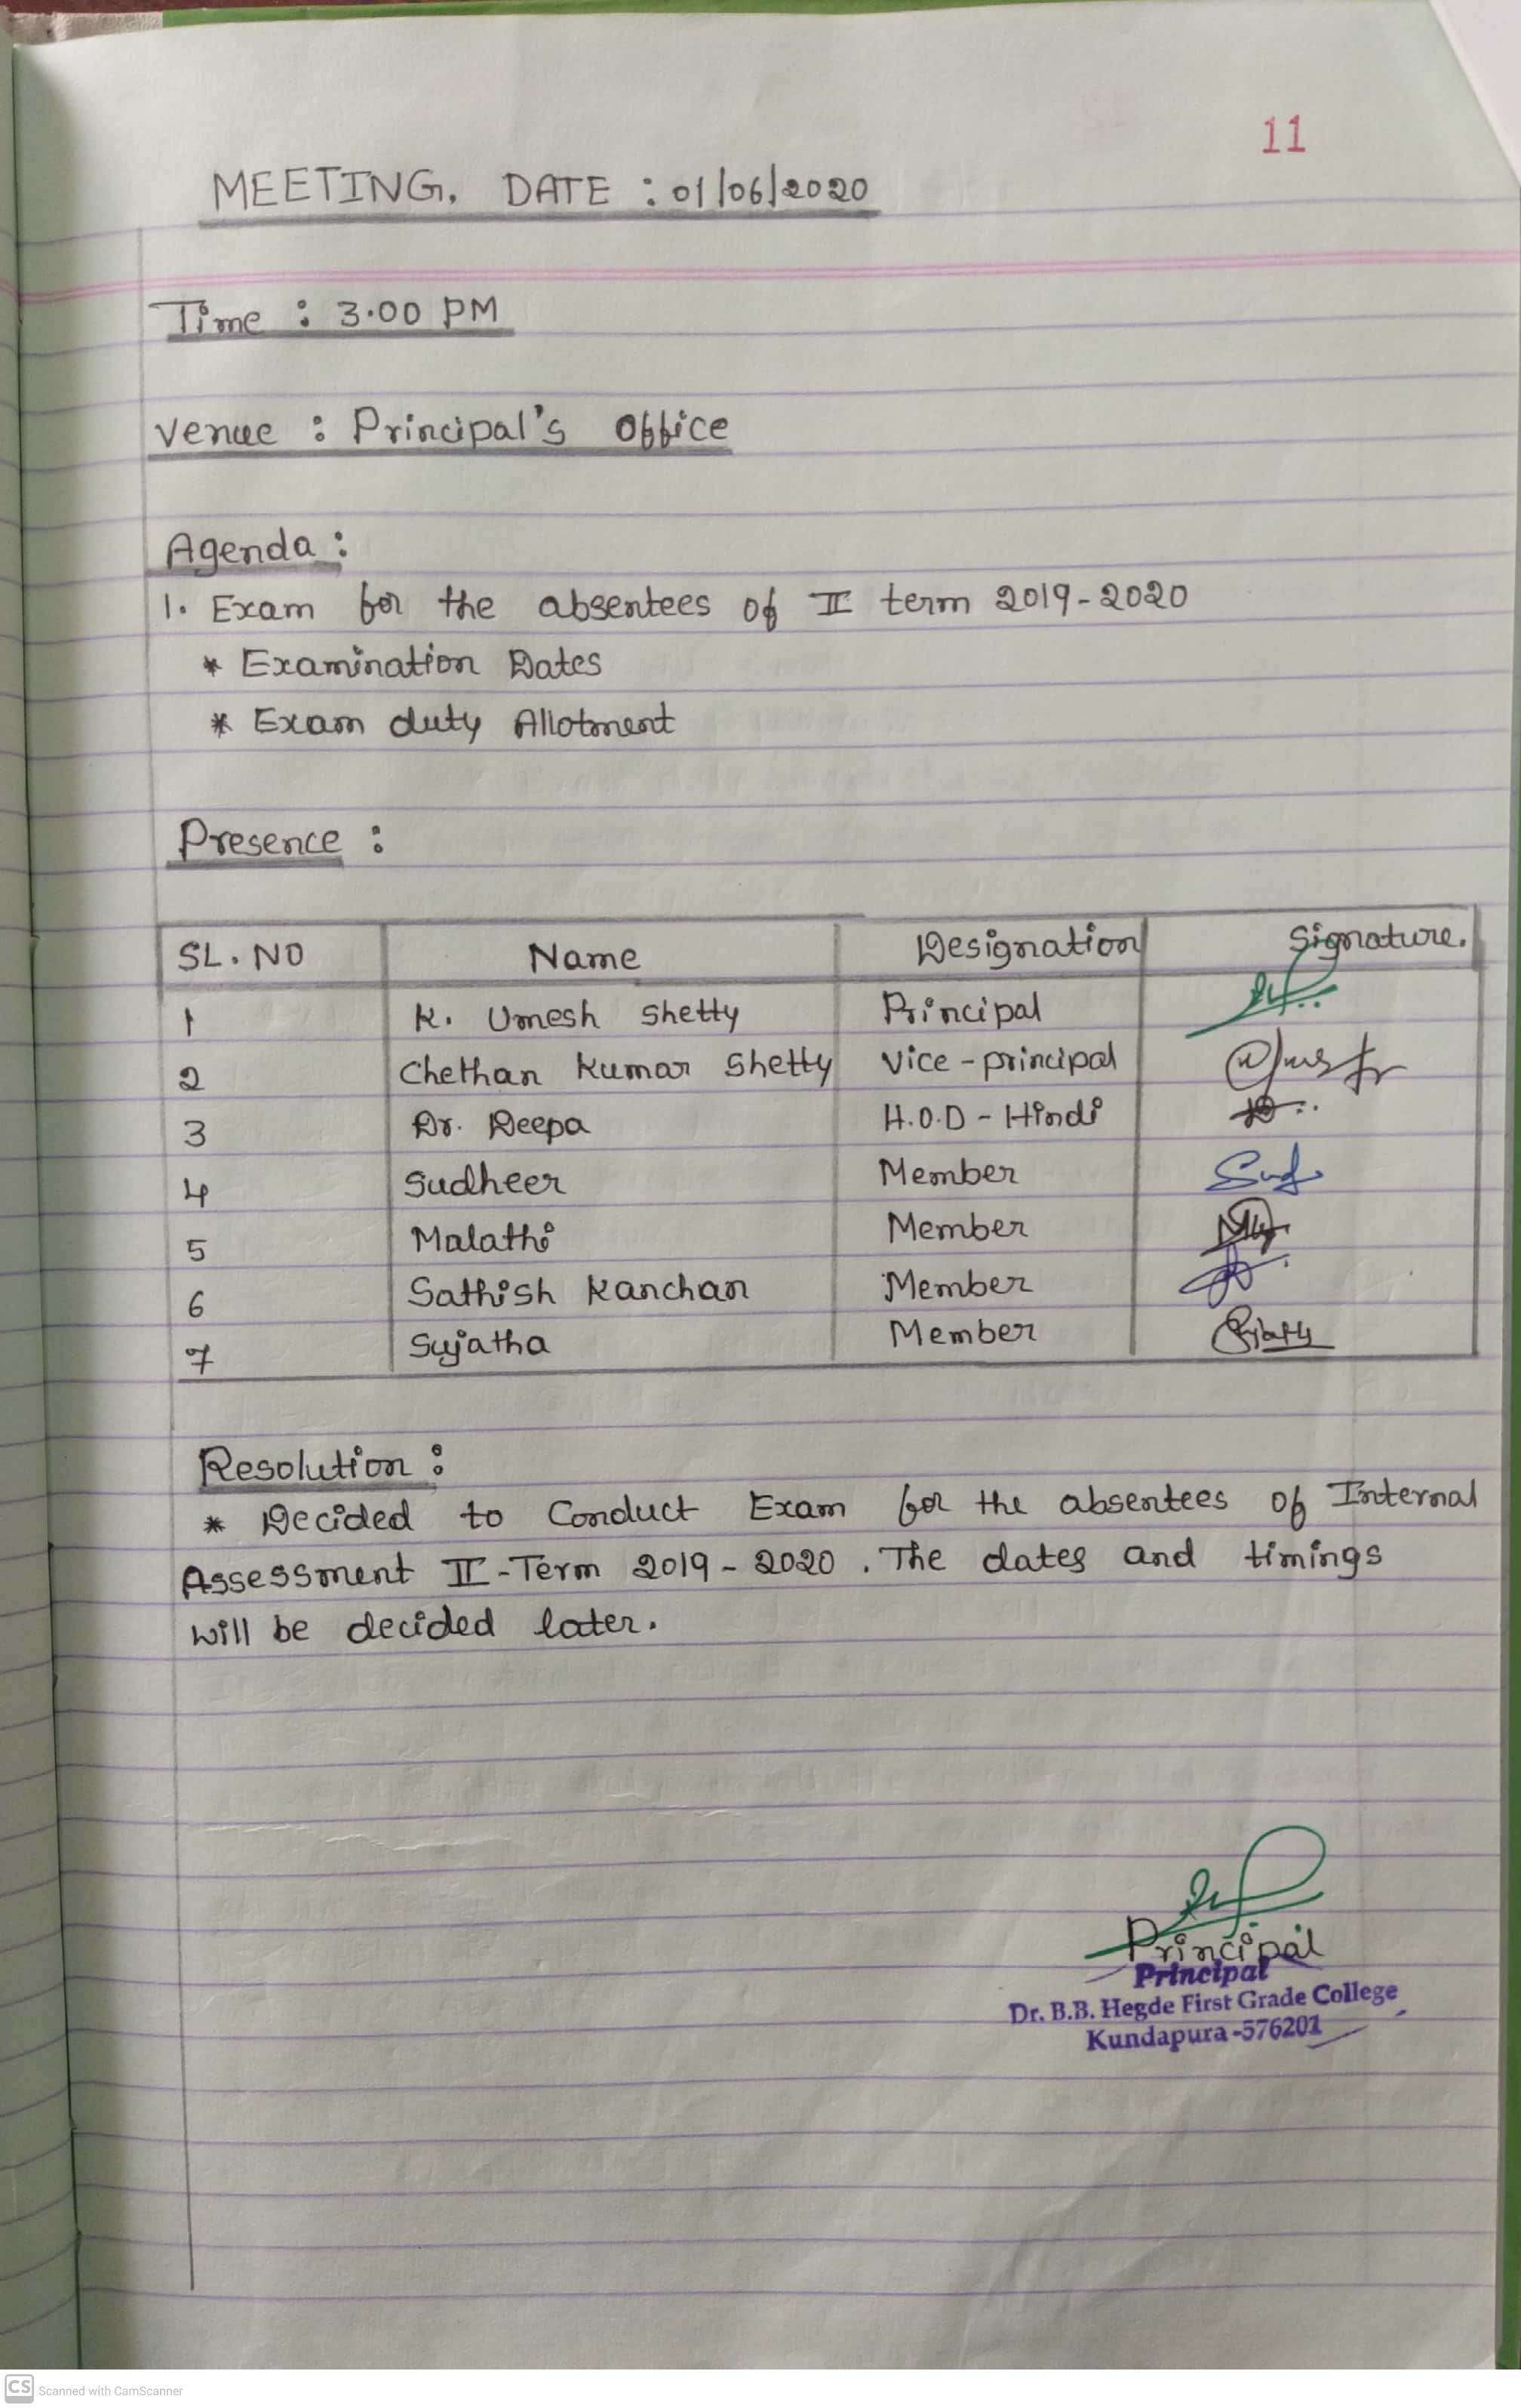 11
MEETING. DATE : 01/06/2020
Time : 3.00 PM
Venue : Principal's Office
Agenda :
1. Exam for the absentees of II term 2019-2020
* Examination Dates
* Exam duty Allotment
Presence :
SL. NO Name Designation Signature.
1 K. Umesh Shetty Principal
2 Chethan Kumar Shetty Vice-principal
3 Dr. Deepa H.O.D - Hindi
4 Sudheer Member
5 Malathi Member
6 Sathish Kanchan Member
7 Sujatha Member
Resolution :
* Decided to Conduct Exam for the absentees of Internal
Assessment II-Term 2019-2020. The dates and timings
will be decided later.
Principal
Principal
Dr. B.B. Hegde First Grade College
Kundapura-576201
CS Scanned with CamScanner